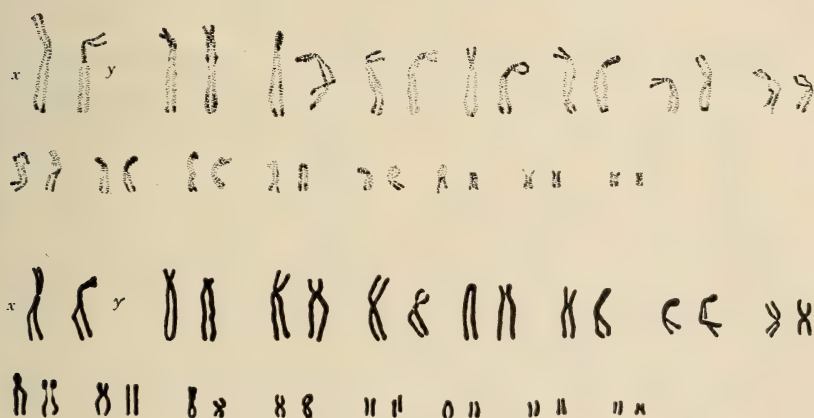 x y
x y